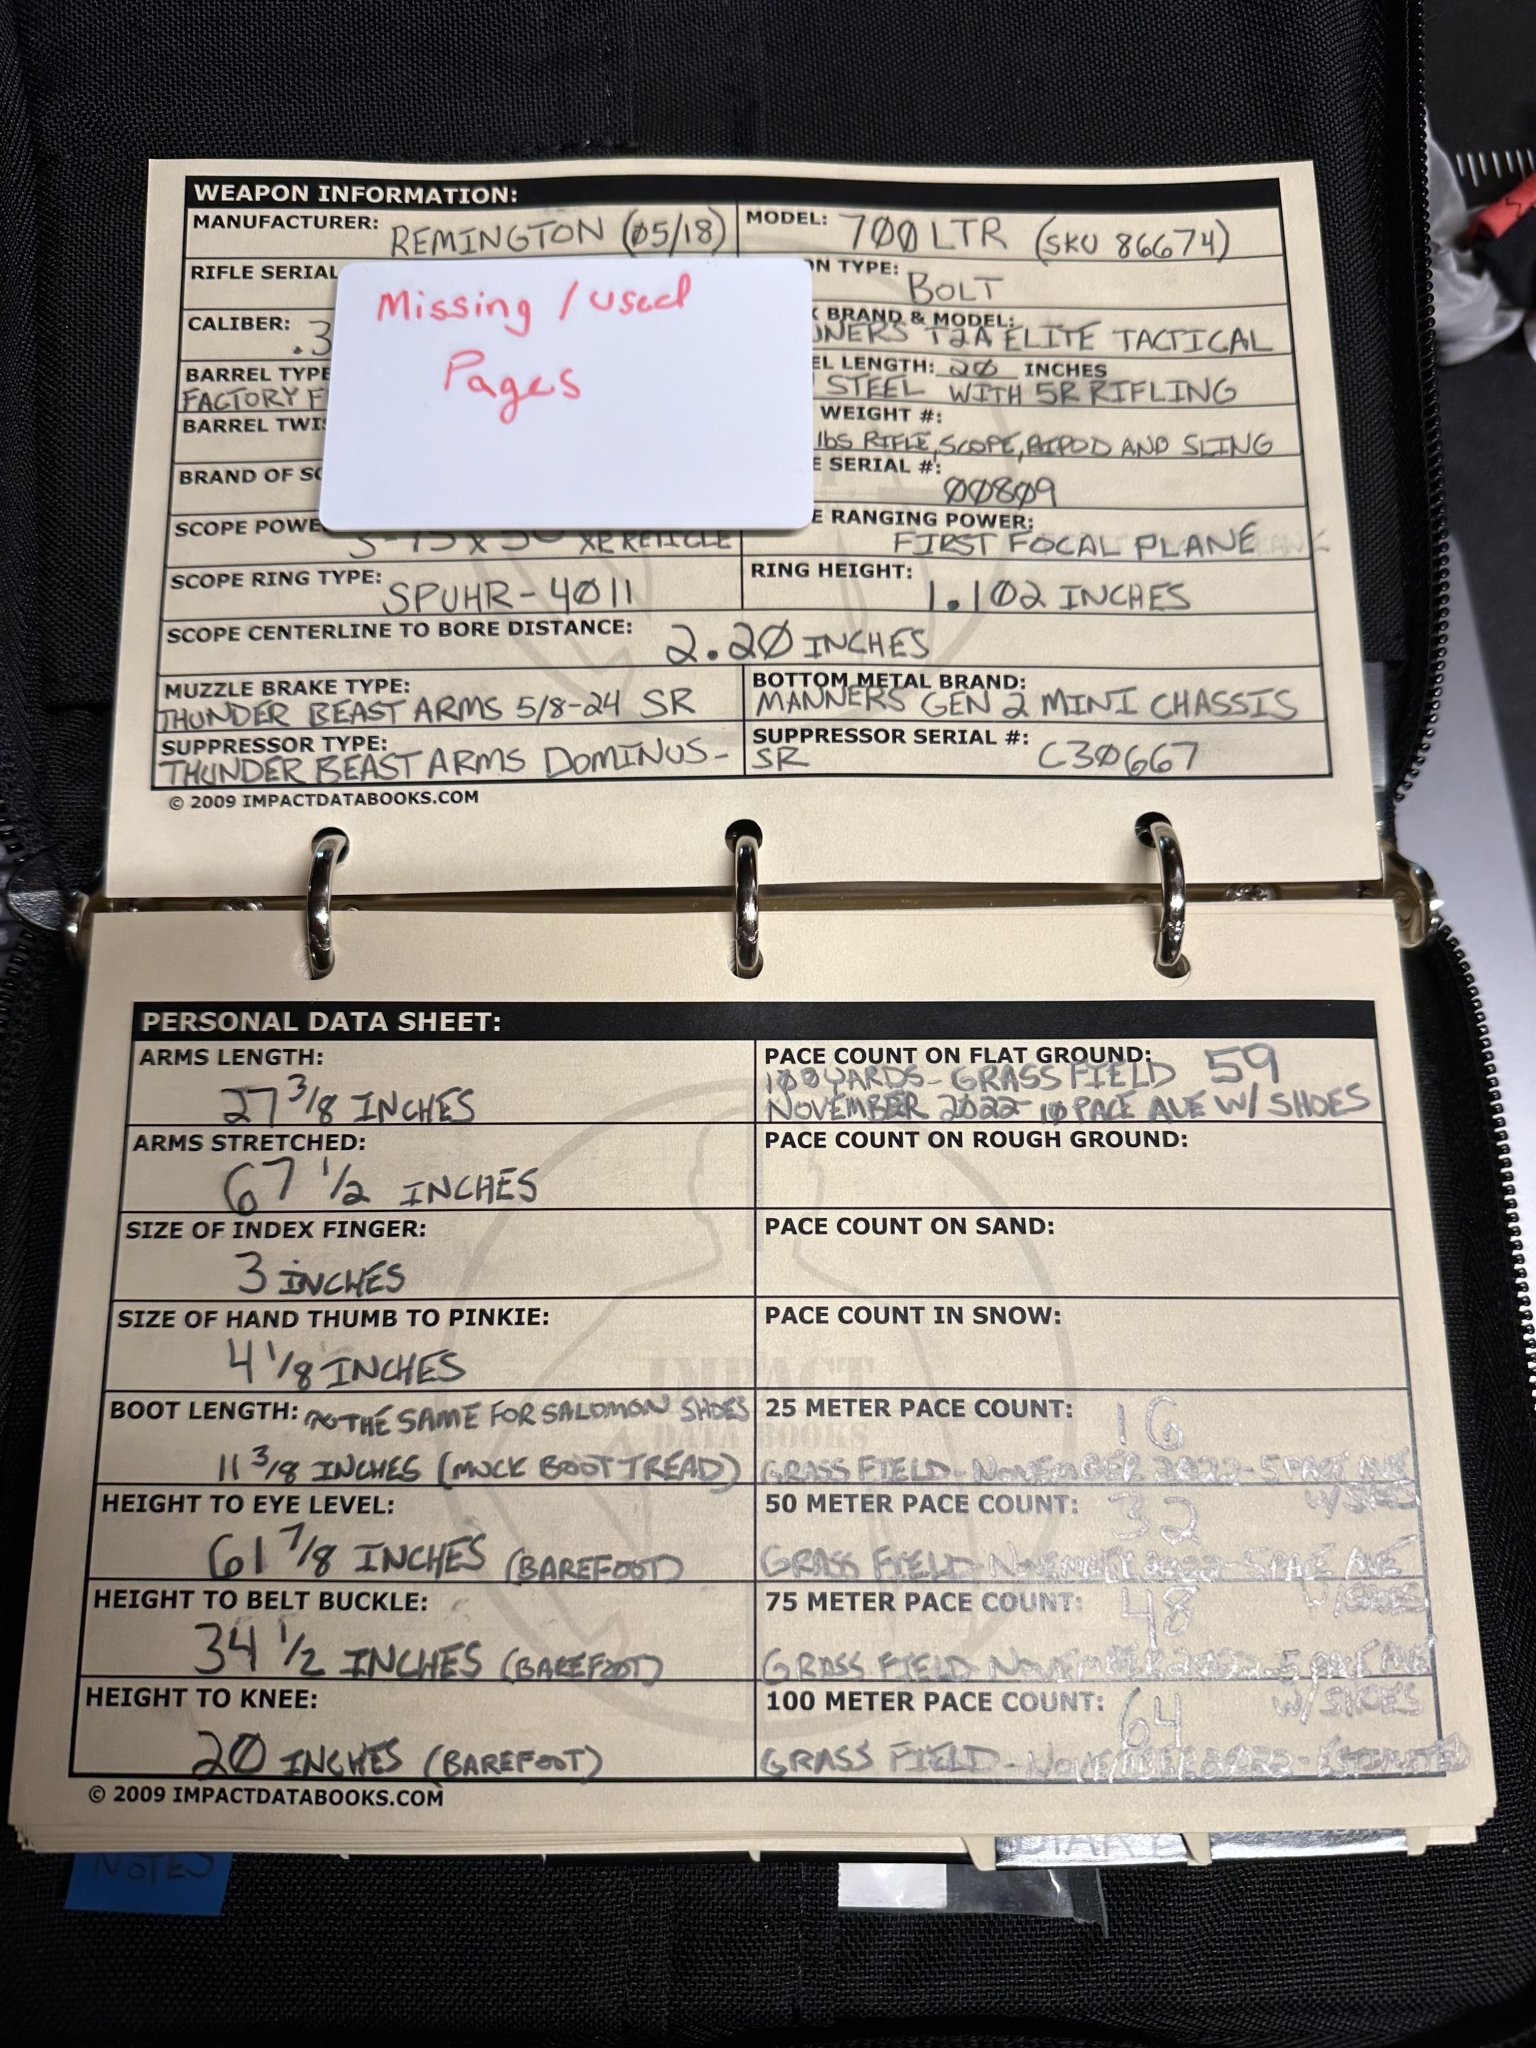 WEAPON INFORMATION:
MANUFACTURER: REMINGTON (05/18)
MODEL: 700 LTR (SKU 86674)
RIFLE SERIAL
N TYPE: BOLT
CALIBER: .3
BRAND & MODEL:
NERS T2A ELITE TACTICAL
BARREL TYPE
FACTORY F
EL LENGTH: 20 INCHES
STEEL WITH 5R RIFLING
BARREL TWI
WEIGHT #:
lbs RIFLE, SCOPE, BIPOD AND SLING
BRAND OF SC
E SERIAL #: 00809
Missing / used
Pages
SCOPE POWE
5-15 x 50 XR RETICLE
E RANGING POWER:
FIRST FOCAL PLANE
SCOPE RING TYPE: SPUHR-4011
RING HEIGHT: 1.102 INCHES
SCOPE CENTERLINE TO BORE DISTANCE: 2.20 INCHES
MUZZLE BRAKE TYPE:
THUNDER BEAST ARMS 5/8-24 SR
BOTTOM METAL BRAND:
MANNERS GEN 2 MINI CHASSIS
SUPPRESSOR TYPE:
THUNDER BEAST ARMS DOMINUS-SR
SUPPRESSOR SERIAL #: C30667
© 2009 IMPACTDATABOOKS.COM
PERSONAL DATA SHEET:
ARMS LENGTH:
27 3/8 INCHES
PACE COUNT ON FLAT GROUND: 59
100 YARDS- GRASS FIELD
NOVEMBER 2022- 10 PACE AVE W/ SHOES
ARMS STRETCHED:
67 1/2 INCHES
PACE COUNT ON ROUGH GROUND:
SIZE OF INDEX FINGER:
3 INCHES
PACE COUNT ON SAND:
SIZE OF HAND THUMB TO PINKIE:
4 1/8 INCHES
PACE COUNT IN SNOW:
IMPACT
DATA BOOKS
BOOT LENGTH: ~ THE SAME FOR SALOMON SHOES
11 3/8 INCHES (MUCK BOOT TREAD)
25 METER PACE COUNT: 16
GRASS FIELD- NOVEMBER 2022- 5 PACE AVE
W/ SHOES
HEIGHT TO EYE LEVEL:
61 7/8 INCHES (BAREFOOT)
50 METER PACE COUNT: 32
GRASS FIELD- NOVEMBER 2022- 5 PACE AVE
W/ SHOES
HEIGHT TO BELT BUCKLE:
34 1/2 INCHES (BAREFOOT)
75 METER PACE COUNT: 48
GRASS FIELD- NOVEMBER 2022- 5 PACE AVE
W/ SHOES
HEIGHT TO KNEE:
20 INCHES (BAREFOOT)
100 METER PACE COUNT: 64
GRASS FIELD- NOVEMBER 2022- ESTIMATED
© 2009 IMPACTDATABOOKS.COM
NOTES